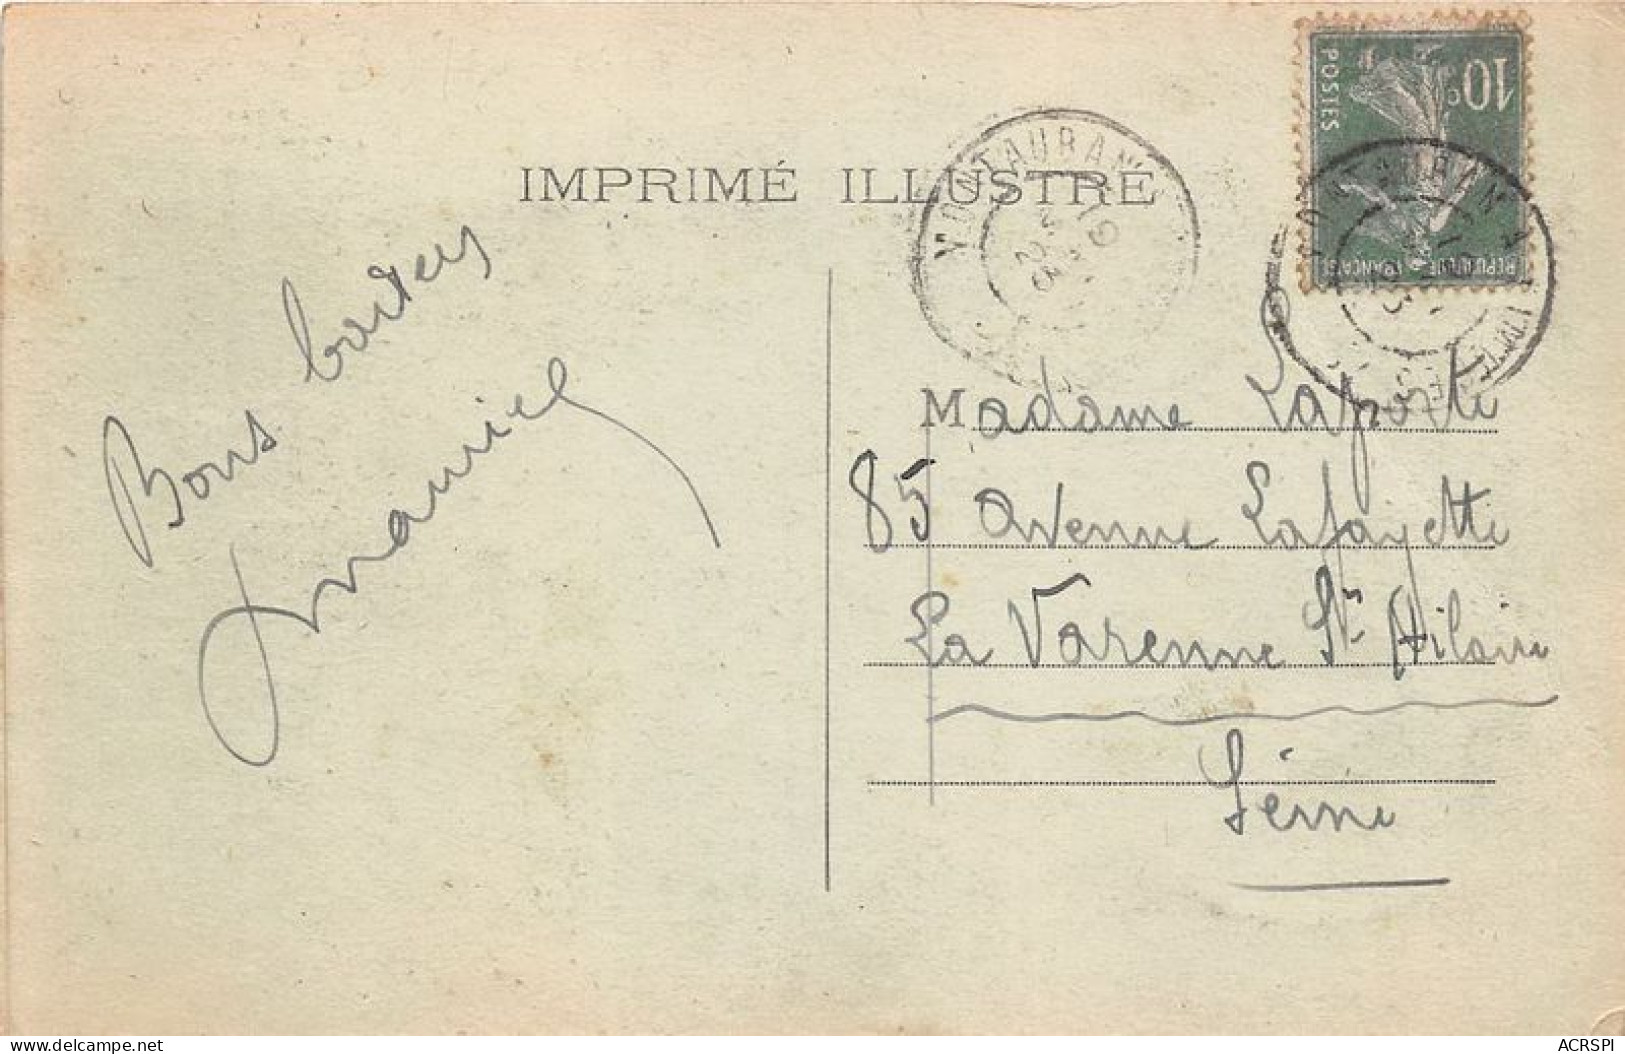 IMPRIMÉ ILLUSTRÉ
10c
POSTES
MONTAURAN
Bons baisers
Madame Laporte
85 Avenue Lafayette
La Varenne St Hilaire
Seine
delcampe.net
ACRSPI